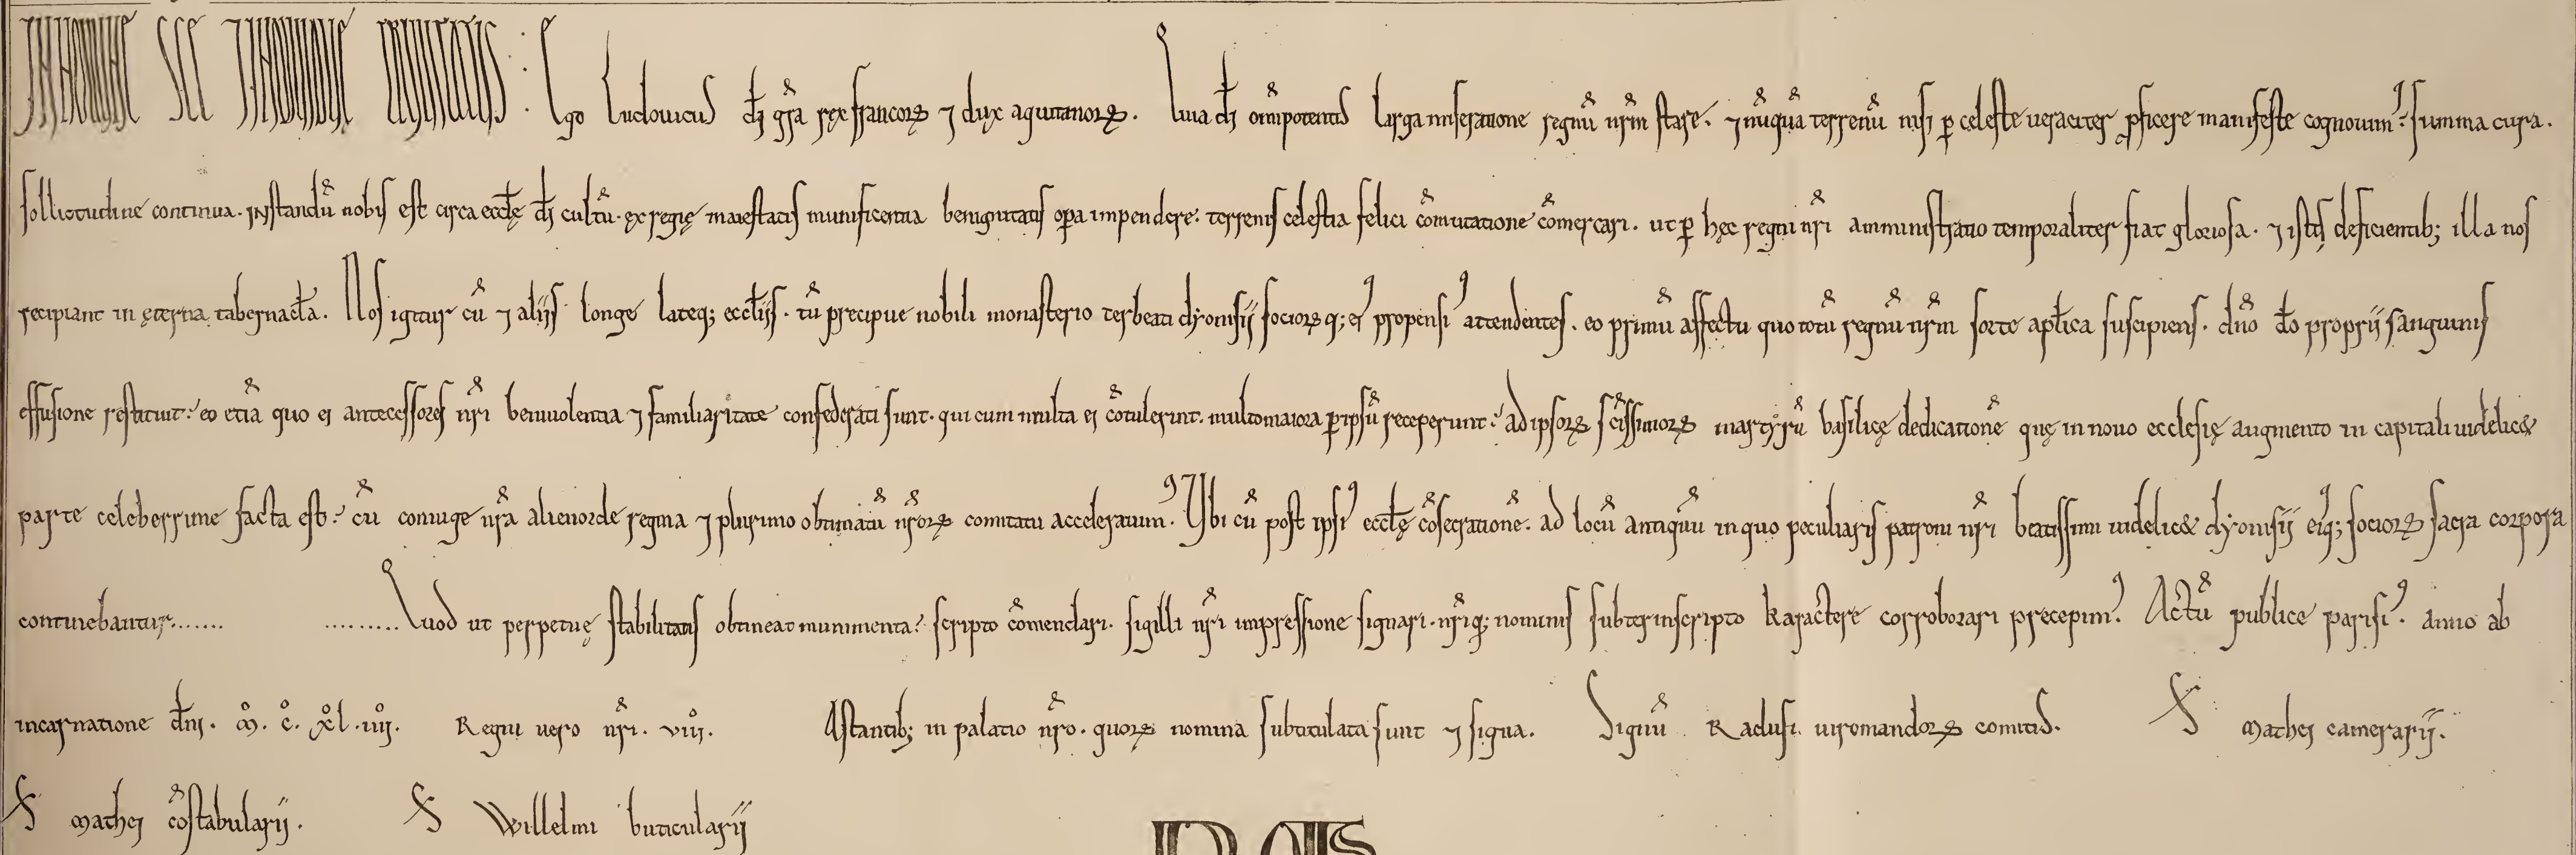 IN NOMINE SCE 7 INDIVIDUE TRINITATIS : Ego Ludouicus dī grā rex francoꝝ 7 dux aquitanoꝝ. Quia dī omīpotentis larga miseratione regnū nrm̄ stare. 7 nūquā terrenū nisi ꝑ celeste ueraciter ꝓficere manifeste cognouimꝰ: summa cura.
sollicitudine continua. instandū nobis est circa eccl̄ę dī cultū. ex regię maiestatis munificentia benignitatis oꝑa impendere: terrenis celestia felici cōmutatione cōmercari. ut ꝑ hęc regni nrī amministratio temporaliter fiat gloriosa. 7 istis deficientib; illa nos
recipiant in ęterna tabernac̄la. Nos igitur cū 7 aliis longe lateq; eccl̄iis. tū precipue nobili monasterio ter beati dyonisii socioꝝq; eiꝰ propensiꝰ attendentes. eo primū affectu quo totū regnū nrm̄ sorte apl̄ica suscipiens. dn̄o dō proprii sanguinis
effusione restituit: eo etiā quo ei antecessores nrī beniuolentia 7 familiaritate confederati sunt. qui cum multa ei cōtulerint. multo maiora ꝑ ipsū receperunt: ad ipsoꝝ sc̄issimoꝝ martyrū basilicę dedicationē quę in nouo ecclesię augmento in capitali uidelic&
parte celeberrime facta est: cū coniuge nrā alienorde regina 7 plurimo obtimatū nrōꝝ comitatu accelerauimꝰ. Vbi cū post ipsiꝰ eccl̄ę cōsecrationē. ad locū antiquū in quo peculiaris patroni nrī beatissimi uidelic& dyonisii eiꝰq; socioꝝ sacra corpora
continebantur....... .........Quod ut perpetuę stabilitatis obtineat munimenta: scripto cōmendari. sigilli nrī impressione signari. nrīq; nominis subterinscripto karactere corroborari precepimꝰ. Actū publice parisiꝰ. anno ab
incarnatione dn̄i. m̊. c̊. x̊l. iiij̊. Regni uero nrī. viij̊. Astantib; in palatio nrō. quoꝝ nomina subtitulata sunt 7 signa. Signū Radulfi uiromandoꝝ comitis. S Mathei camerarii.
S Mathei cōstabularii. S Willelmi buticularii